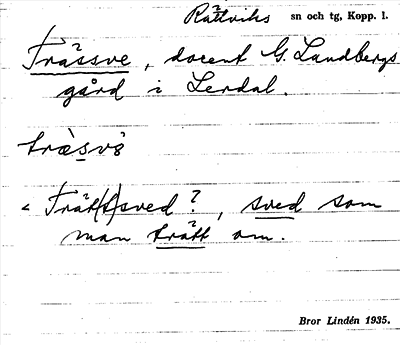 Rättviks sn och tg, Kopp. l.
Trässve, docent G. Lundbergs
gård i Lerdal.
træ̀svə̀
< Trät(t)sved?, sved som
man trätt om.
Bror Lindén 1935.